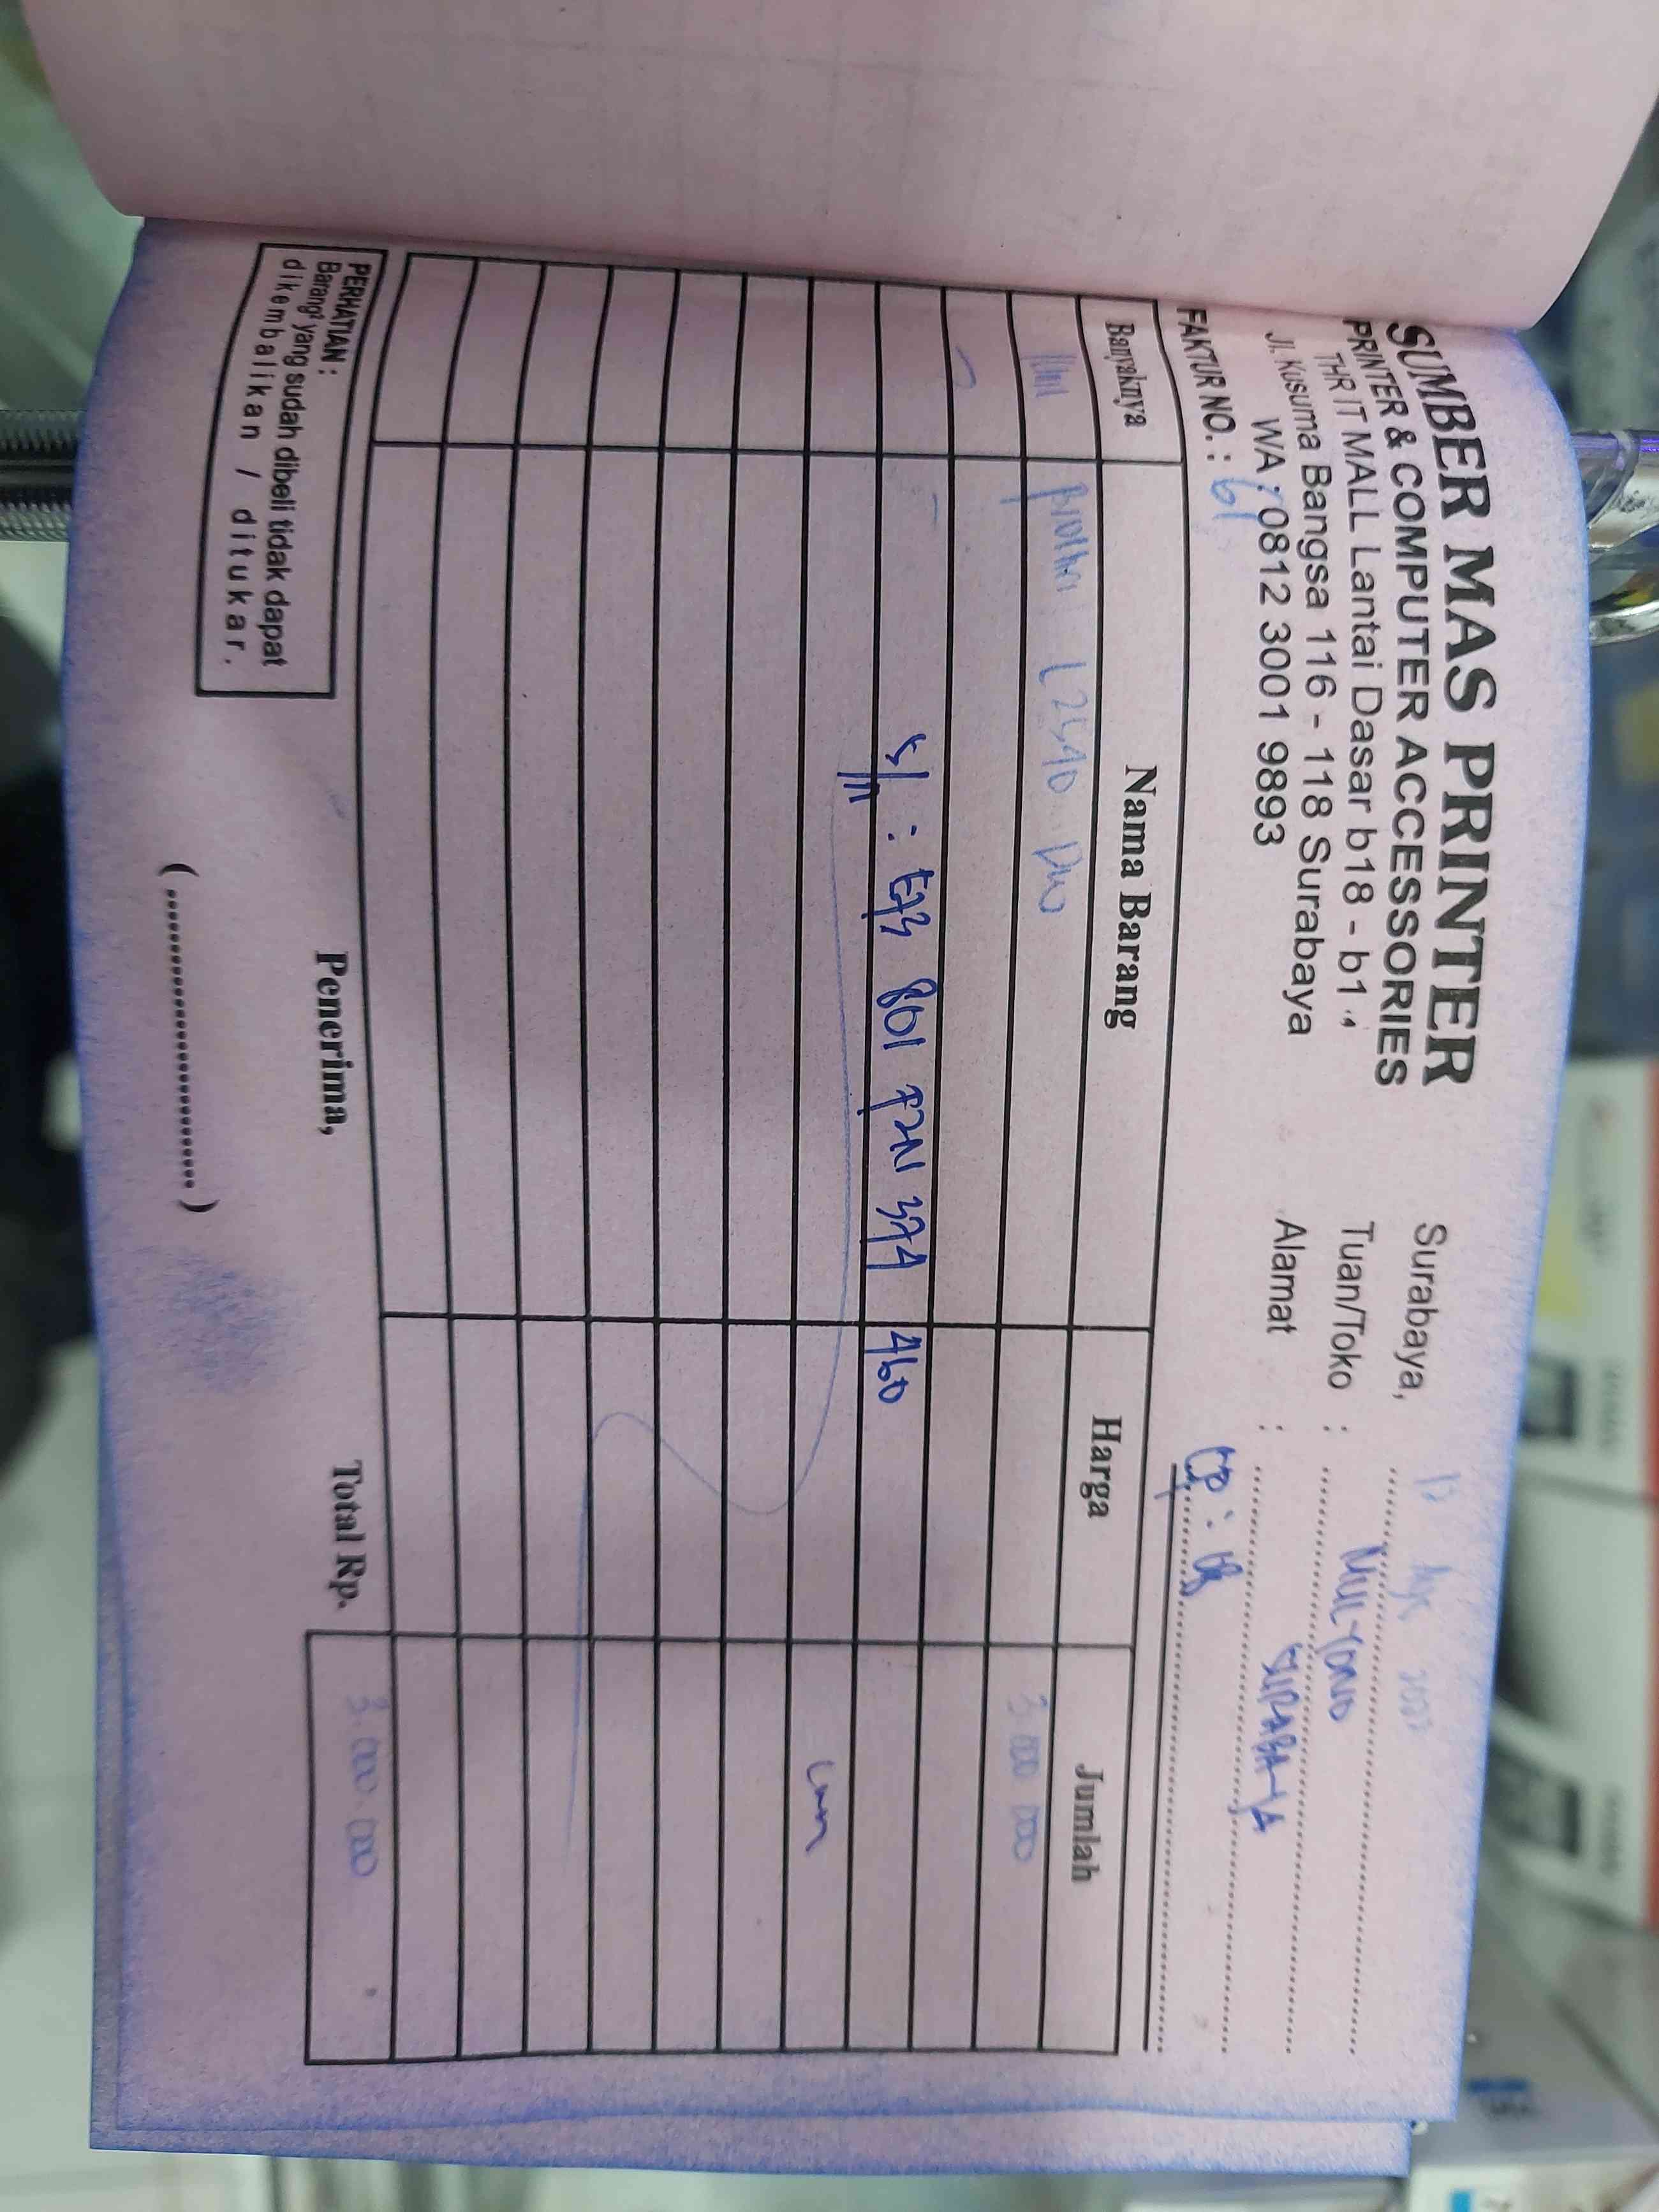 SUMBER MAS PRINTER
PRINTER & COMPUTER ACCESSORIES
THR IT MALL Lantai Dasar b18 - b1
Jl. Kusuma Bangsa 116 - 118 Surabaya
WA : 0812 3001 9893
FAKTUR NO. : 61
Surabaya,
Tuan/Toko : MULYONO
Alamat : SURABAYA
CP : 08
Banyaknya Nama Barang Harga Jumlah
L2540 DW 3 000 000
S/N : E73 801 F2N 374 460
Lunas
PERHATIAN :
Barang² yang sudah dibeli tidak dapat
dikembalikan / ditukar.
Penerima,
(..............................)
Total Rp. 3.000.000